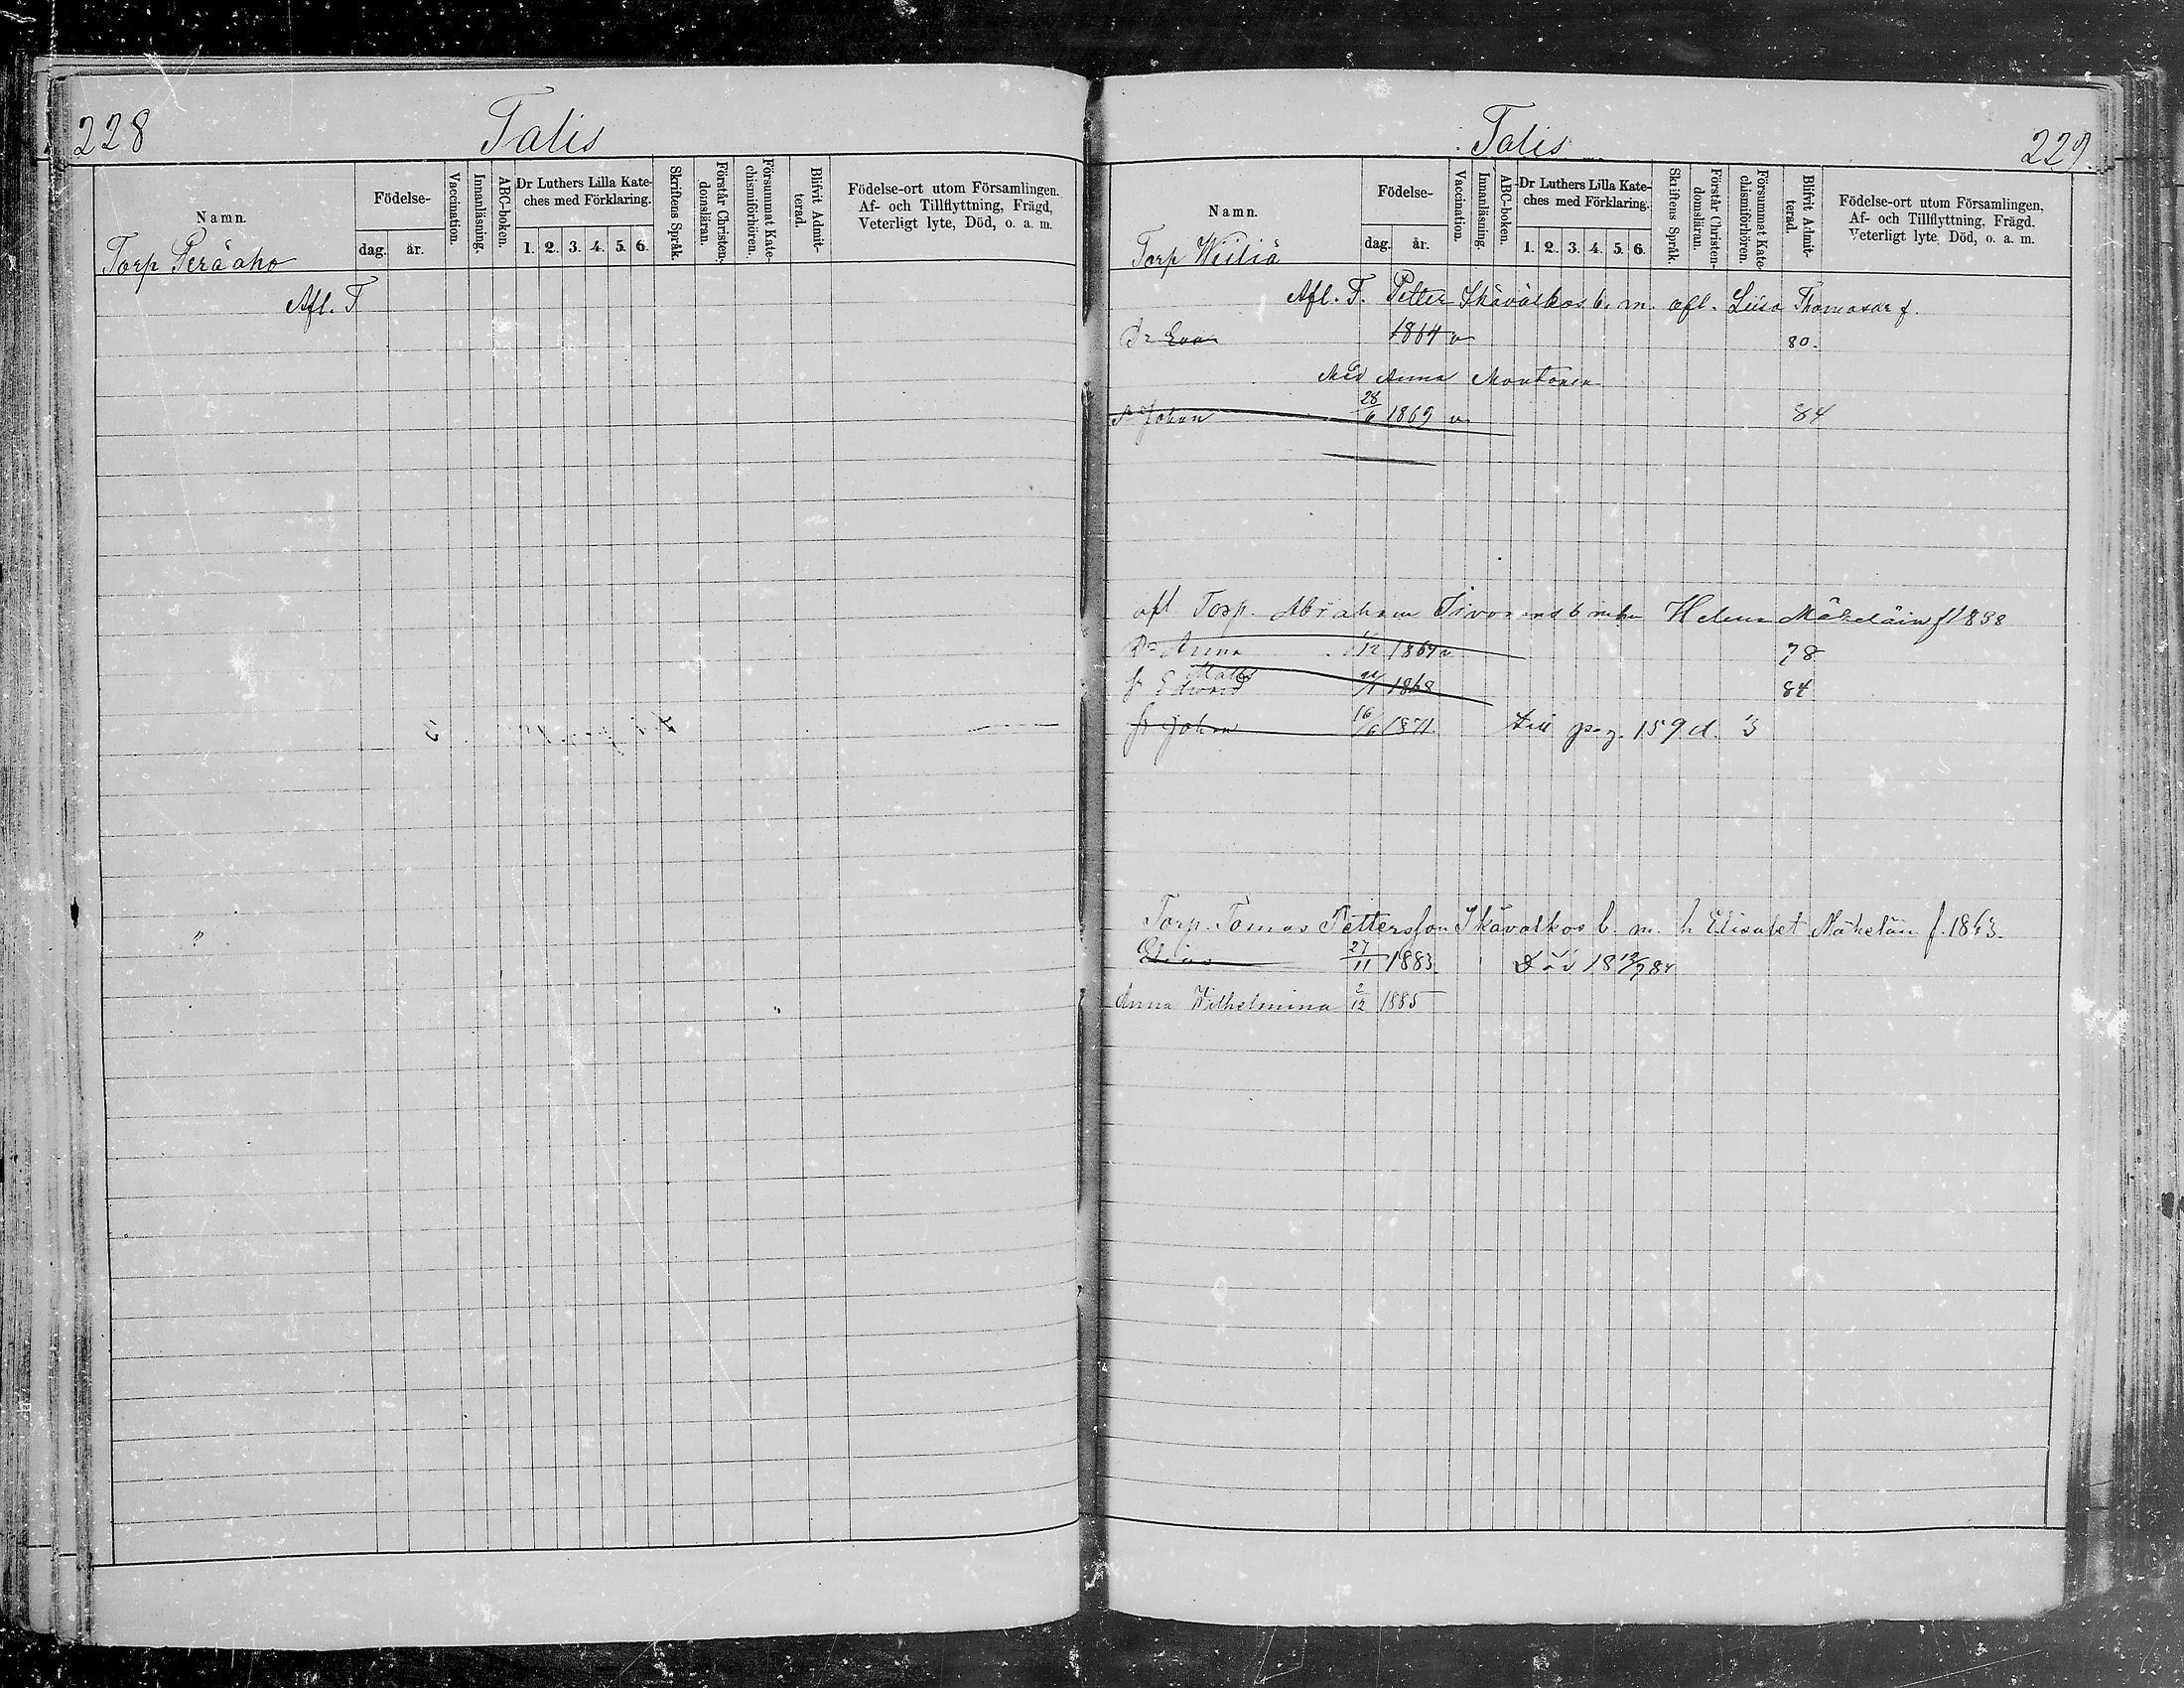 228
Talis
Namn.
Födelse-
dag.
år.
Vaccination.
Innanläsning.
ABC-boken.
Dr Luthers Lilla Kate-
ches med Förklaring.
1. 2. 3. 4. 5. 6.
Skriftens Språk.
Förstår Christen-
domsläran.
Försummat Kate-
chismiförhören.
Blifvit Admit-
terad.
Födelse-ort utom Församlingen,
Af- och Tillflyttning, Frägd,
Veterligt lyte, Död, o. a. m.
Torp Peräaho
Afl. T
Talis
229.
Namn.
Födelse-
dag.
år.
Vaccination.
Innanläsning.
ABC-boken.
Dr Luthers Lilla Kate-
ches med Förklaring.
1. 2. 3. 4. 5. 6.
Skriftens Språk.
Förstår Christen-
domsläran.
Försummat Kate-
chismiförhören.
Blifvit Admit-
terad.
Födelse-ort utom Församlingen,
Af- och Tillflyttning, Frägd,
Veterligt lyte, Död, o. a. m.
Torp Wiiliä
Afl. T. Petter Skävälkos b. m. afl. Liisa Thomasdr f.
Dr Eva 1864 v 80.
Med Anna Montonen
S Johan 28/6 1869 v 84
afl. Torp. Abraham b m hu Helena f 1838
Dr Anna 1/12 1864 v 78
Matts
S Edvard 1868 84
S Johan 16/6 1871 till pag. 159 d. 3
Torp. Tomas Pettersson Skävälkos b. m. h Elisabet Mäkeläin f. 1863.
Elias 27/11 1883 Död 18 84
Anna Wilhelmina 2/12 1885